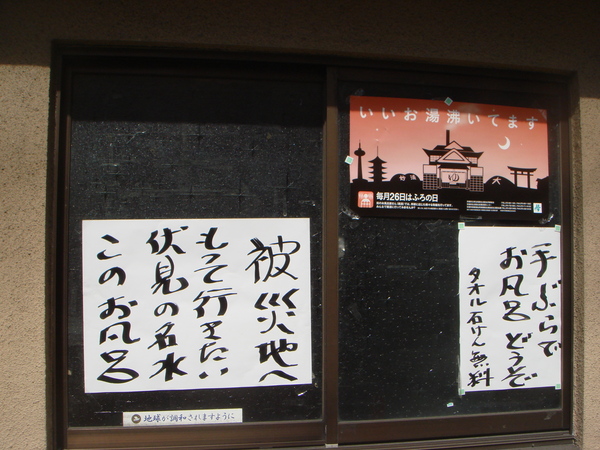 被災地へ
もって行きたい
伏見の名水
このお風呂
地球が調和されますように
いいお湯沸いてます
ゆ
毎月26日はふろの日
手ぶらで
お風呂どうぞ
タオル石けん無料